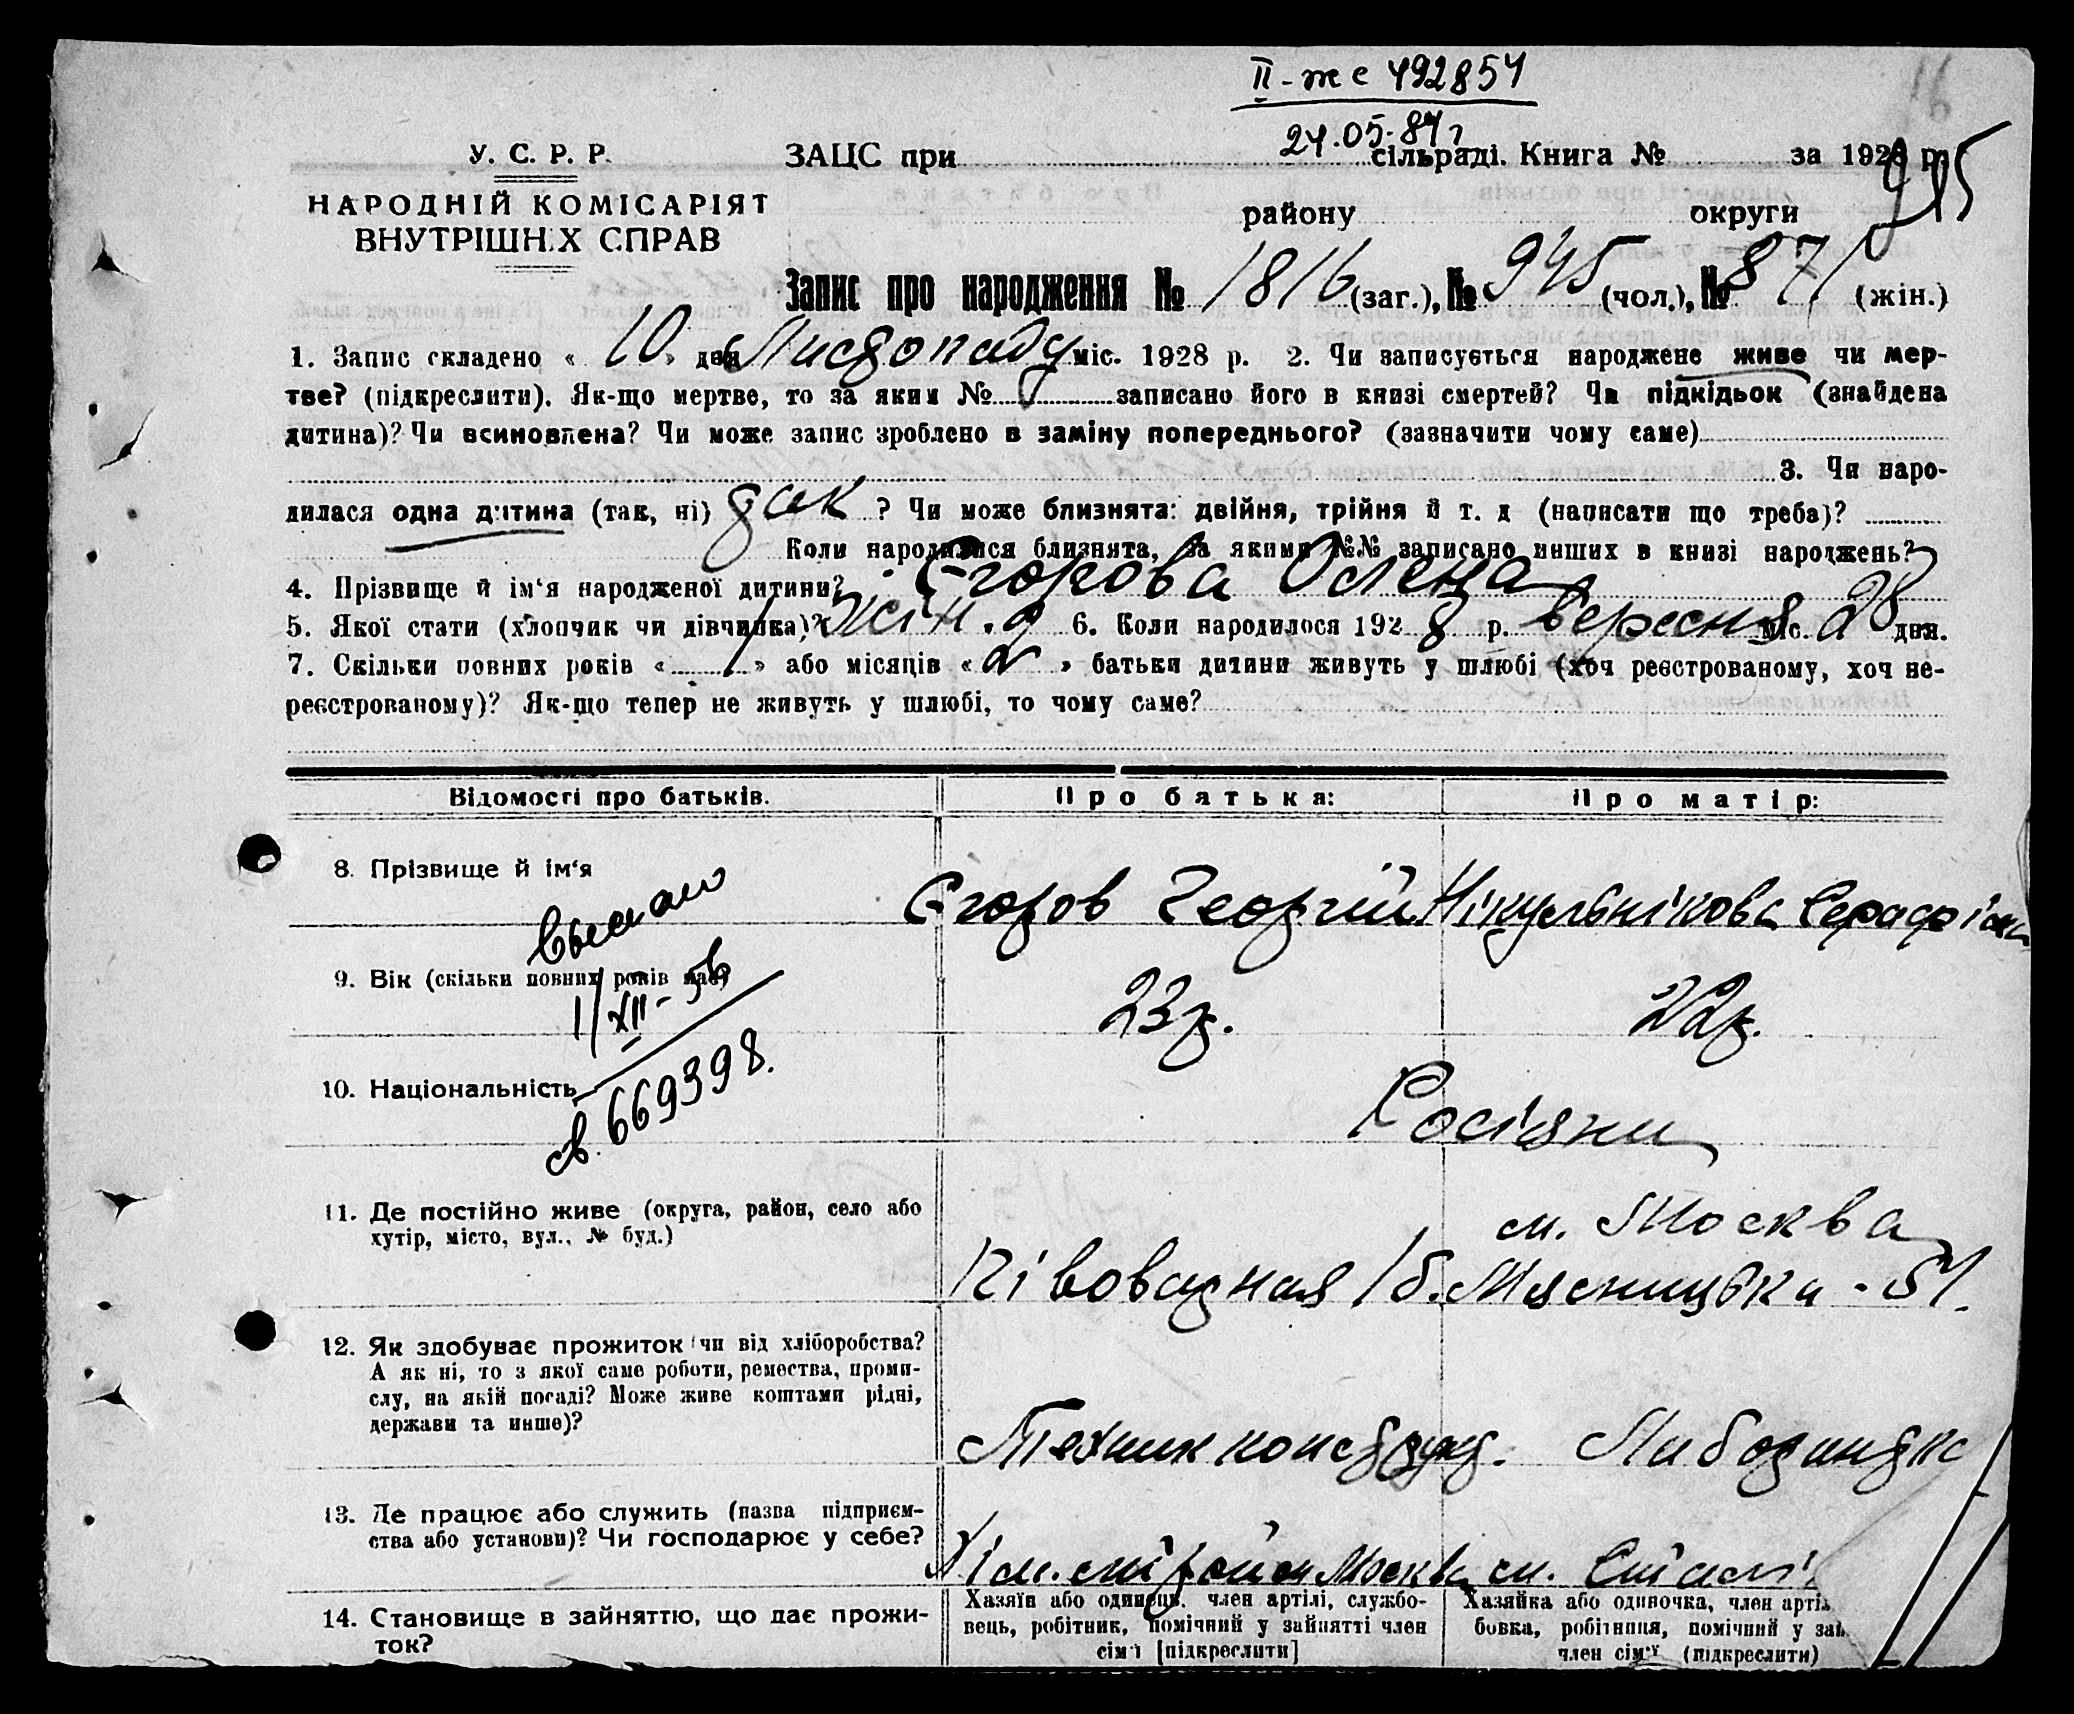 ІІ-же 492854
16
24.05.84 г
У. С. Р. Р.
ЗАЦС при сільраді. Книга № за 1928 р.
НАРОДНІЙ КОМІСАРІЯТ
ВНУТРІШНІХ СПРАВ
району округи
Запис про народження № 1816 (заг.), № 945 (чол.), № 871 (жін.)
1. Запис складено « 10 » дня Листопаду міс. 1928 р. 2. Чи записується народжене живе чи мер-
тве? (підкреслити). Як-що мертве, то за яким № записано його в книзі смертей? Чи підкідьок (знайдена
дитина)? Чи всиновлена? Чи може запис зроблено в заміну попереднього? (зазначити чому саме)
3. Чи наро-
дилася одна дитина (так, ні) так ? Чи може близнята: двійня, трійня й т. д (написати що треба)?
Коли народилися близнята, за якими №№ записано инших в книзі народжень?
4. Прізвище й ім‘я народженої дитини? Єгорова Олена
5. Якої стати (хлопчик чи дівчинка)? Жін. 6. Коли народилося 192 8 р. вересня міс. 28 дня.
7. Скільки повних років « 1 » або місяців « 2 » батьки дитини живуть у шлюбі (хоч реєстрованому, хоч не-
реєстрованому)? Як-що тепер не живуть у шлюбі, то чому саме?
Відомості про батьків. Про батька: Про матір:
8. Прізвище й ім‘я Єгоров Георгій Нікульнікова Серафіма
9. Вік (скільки повних років має) 23 р. 22 р.
Выслано
1/XII-56
св. 669398.
10. Національність Росіяни
11. Де постійно живе (округа, район, село або
хутір, місто, вул., № буд.)
м. Москва
15. Мясницька - 51.
12. Як здобуває прожиток чи від хліборобства?
А як ні, то з якої саме роботи, ремества, проми-
слу, на якій посаді? Може живе коштами рідні,
держави та инше)?
Технік конструкт.
13. Де працює або служить (назва підприєм-
ства або установи)? Чи господарює у себе?
Москва м.
14. Становище в зайняттю, що дає прожи-
ток?
Хазяїн або одинець, член артілі, службо-
вець, робітник, помічний у зайнятті член
сім‘ї [підкреслити]
Хазяйка або одиночка, член артіл
бовка, робітниця, помічний у зай
член сім‘ї (підкреслити)